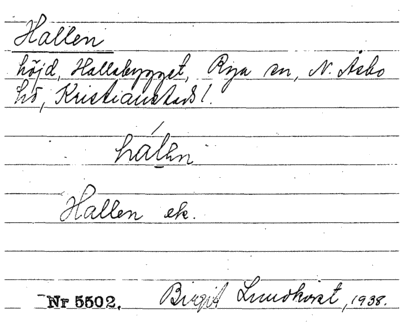 Hallen
höjd, Hallabygget, Rya sn, N. Åsbo
hd, Kristianstads l.
hálẹn
Hallen ek.
Nr 5502. Birgit Lundkvist, 1938.